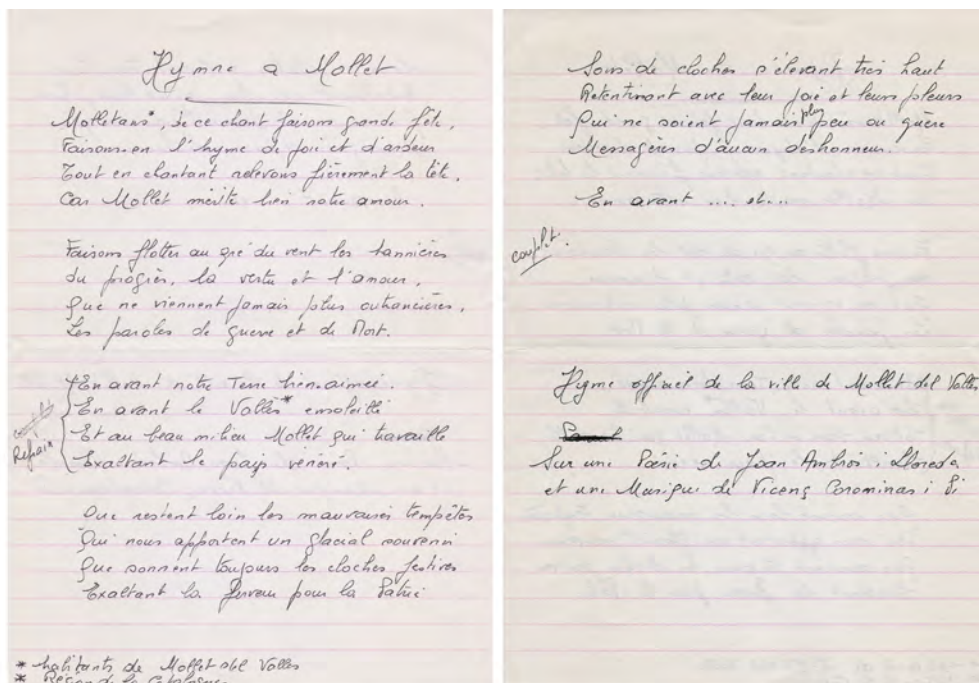 Hymne a Mollet
Molletans*, de ce chant faisons grande fête,
Faisons-en l'hyme de joie et d'ardeur
Tout en chantant relevons fièrement la tête,
Car Mollet mérite bien notre amour.
Faisons flotter au gré du vent les bannières
du progrès, la vertu et l'amour,
Que ne viennent jamais plus outrancières,
Les paroles de guerre et de Mort.
Refrain
En avant notre Terre bien-aimée.
En avant le Vallès* ensoleillé
Et au beau milieu Mollet qui travaille
Exaltant le pays vénéré.
Que restent loin les mauvaises tempêtes
Qui nous apportent un glacial souvenir
Que sonnent toujours les cloches festives
Exaltant la ferveur pour la Patrie
* habitants de Mollet del Valles
* Région de la Catalogne
Sons de cloches s'élevant très haut
Retentissant avec leur joie et leurs pleurs
Qui ne soient jamais plus peu ou guère
Messagères d'aucun déshonneur.
En avant .... et...
couplet.
Hyme officiel de la ville de Mollet del Valles
Sur une Poésie de Joan Ambros i Lloreda
et une Musique de Vicenç Corominas i Pi